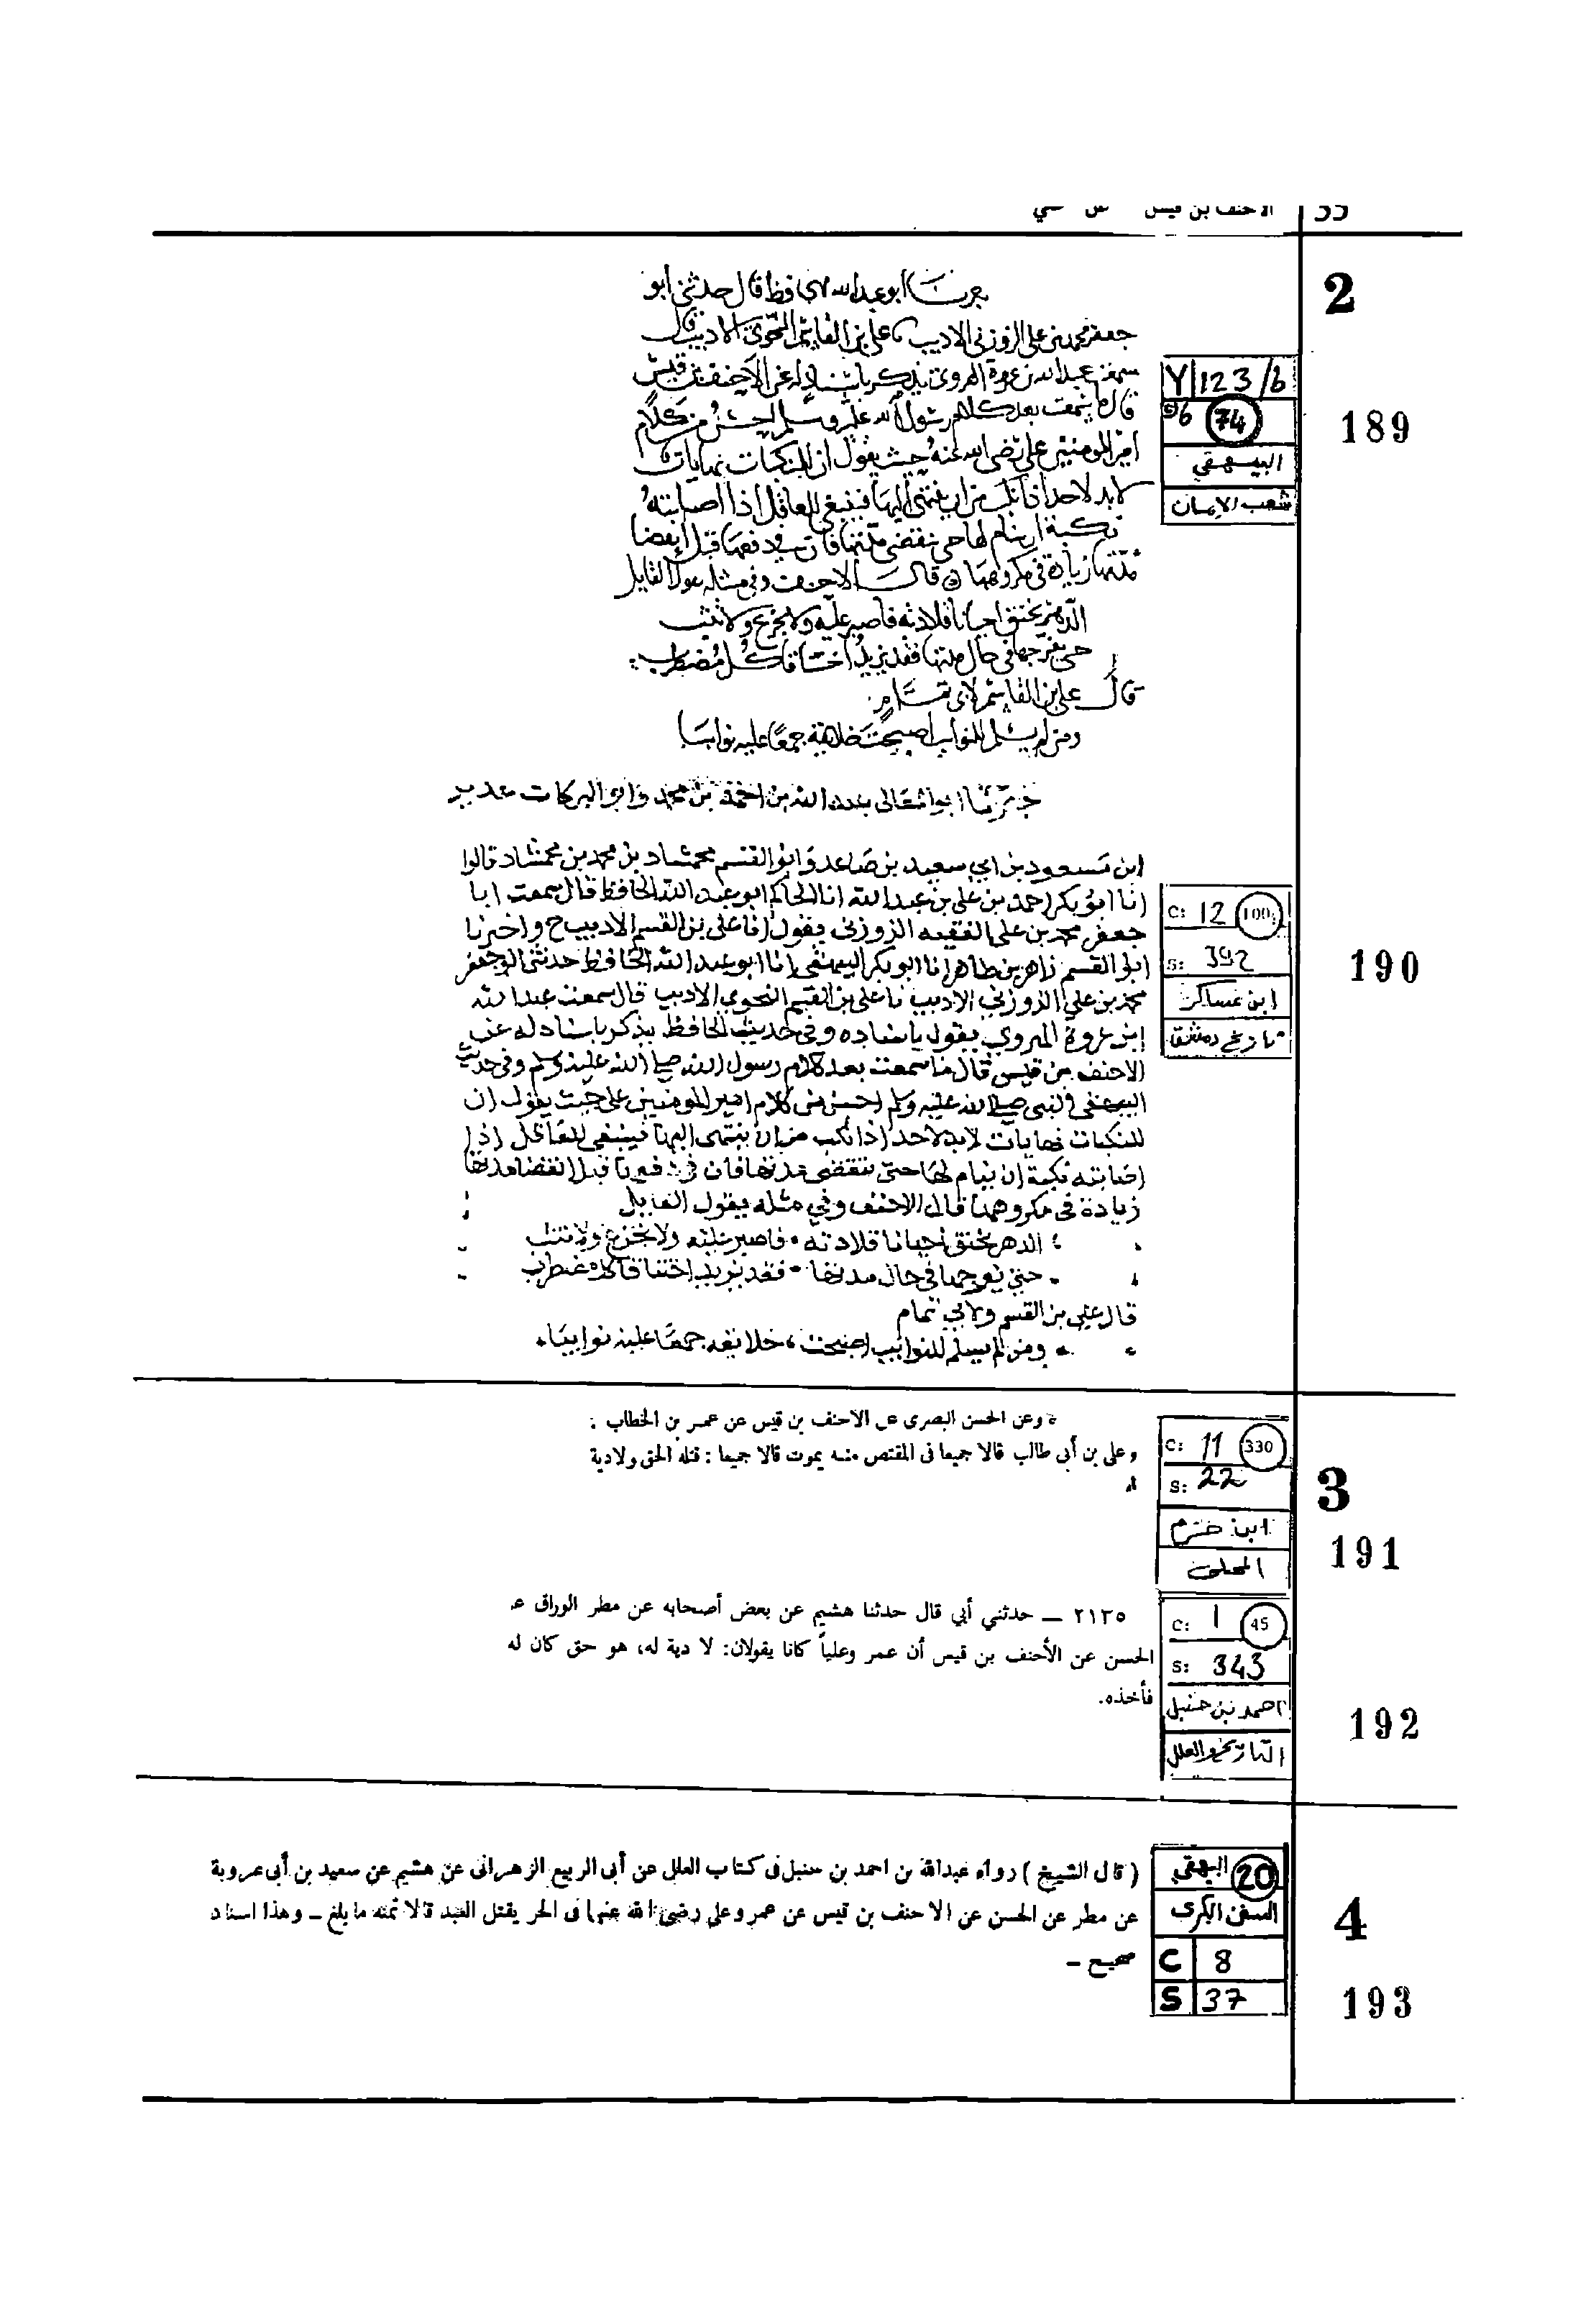 الاحنف بن قيس
2
ابو عبد الله الحافظ قال حدثني ابو
جعفر محمد بن علي الزوزني الاديب علي بن القاسم النحوي الاديب قال
سمعت عبد الله بن عروة الهروي يذكر باسناد له عن الاحنف بن قيس
قال ما سمعت بعد كلام رسول الله عليه وسلم احسن من كلام
امير المومنين علي رضي الله عنه حيث يقول ان للنكبات نهايات
لابد لاحد اذا نكب من ان ينتهي اليها فينبغي للعاقل اذا اصابته
نكبة ان ينام لها حتى تنقضي مدتها فان في دفعها قبل انقضا
مدتها زيادة في مكروهها قال الاحنف وفي مثله يقول القايل
الدهر يخنق احيانا قلادته فاصبر عليه ولا تجزع ولا تثب
حتى يفرجها في حال مدتها فقد يزيد اختناقا كل مضطرب
قال علي بن القاسم لابي تمام
ومن لم يسلم للنوايب اصبحت خلايقه جمعا عليه نوايبا
Y 123/b
96 74
البيهقي
شعب الإيمان
189
ابو المعالي عبد الله بن احمد بن محمد وابو البركات
ابن مسعود بن ابي سعيد بن صاعد وابو القسم محمشاد بن محمد بن محمشاد قالوا
انا ابو بكر احمد بن علي بن عبد الله انا الحاكم ابو عبد الله الحافظ قال سمعت ابا
جعفر محمد بن علي الفقيه الزوزني يقول انا علي بن القسم الاديب ح واخبرنا
ابو القسم زاهر بن طاهر انا ابو بكر البيهقي انا ابو عبد الله الحافظ حدثني ابو جعفر
محمد بن علي الزوزني الاديب نا علي بن القسم النحوي الاديب قال سمعت عبد الله
ابن عروة الهروي يقول باسناده وفي حديث الحافظ يذكر باسناد له عن
الاحنف بن قيس قال ما سمعت بعد كلام رسول الله صلى الله عليه وسلم وفي حديث
البيهقي النبي صلى الله عليه وسلم احسن من كلام امير المومنين علي حيث يقول ان
للنكبات نهايات لابد لاحد اذا نكب من ان ينتهي اليها فينبغي للعاقل اذا
اصابته نكبة ان ينام لها حتى تنقضي مدتها فان في دفعها قبل انقضا مدتها
زيادة في مكروهها قال الاحنف وفي مثله يقول القايل
الدهر يخنق احيانا قلادته • فاصبر عليه ولا تجزع ولا تثب
حتى يفرجها في حال مدتها • فقد يزيد اختناقا كل مضطرب
قال علي بن القسم ولابي تمام
ومن لم يسلم للنوايب اصبحت، خلايقه جمعا عليه نوايبا
C: 12 100
S: 392
ابن عساكر
تاريخ دمشق
190
وعن الحسن البصرى عن الأحنف بن قيس عن عمر بن الخطاب .
وعلى بن أبى طالب قالا جميعا فى المقتص منه يموت قالا جميعا : قتله الحق ولا دية
C: 11 330
S: 22
ابن حزم
المحلى
3
191
٢١٣٥ ـ حدثني أبي قال حدثنا هشيم عن بعض أصحابه عن مطر الوراق
الحسن عن الأحنف بن قيس أن عمر وعلياً كانا يقولان: لا دية له، هو حق كان له
فأخذه.
C: 1 45
S: 343
احمد بن حنبل
التاريخ والعلل
192
( قال الشيخ ) رواه عبدالله بن احمد بن حنبل فى كتاب العلل عن أبى الربيع الزهرانى عن هشيم عن سعيد بن أبى عروبة
عن مطر عن الحسن عن الاحنف بن قيس عن عمر وعلى رضى الله عنهما فى الحر يقتل العبد قالا ثمنه ما بلغ ـ وهذا اسناد
صحيح ـ
البيهقي 20
السنن الكبرى
C 8
S 37
4
193